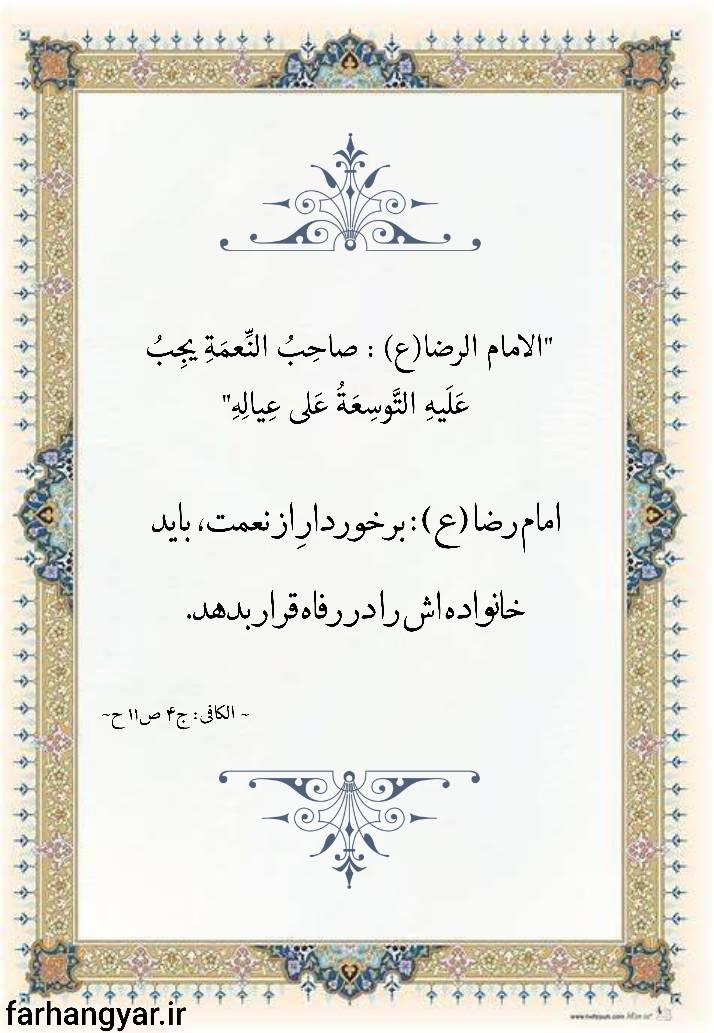 "الامام الرضا(ع) : صاحِبُ النِّعمَةِ يجِبُ
عَلَيهِ التَّوسِعَةُ عَلى عِيالِهِ"
امام رضا(ع): برخوردارِ از نعمت، باید
خانواده اش را در رفاه قرار بدهد.
~ الکافی: ج۴ ص۱۱ ح~
farhangyar.ir